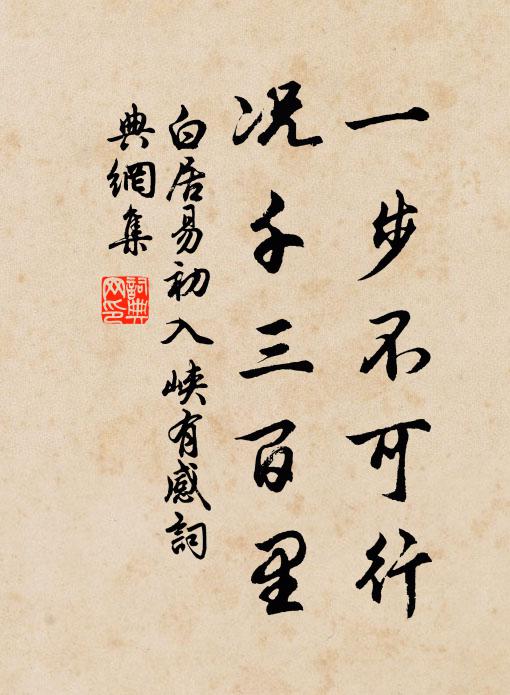 一步不可行
况千三百里
白居易初入峡有感詞
典網集
詞典
网印